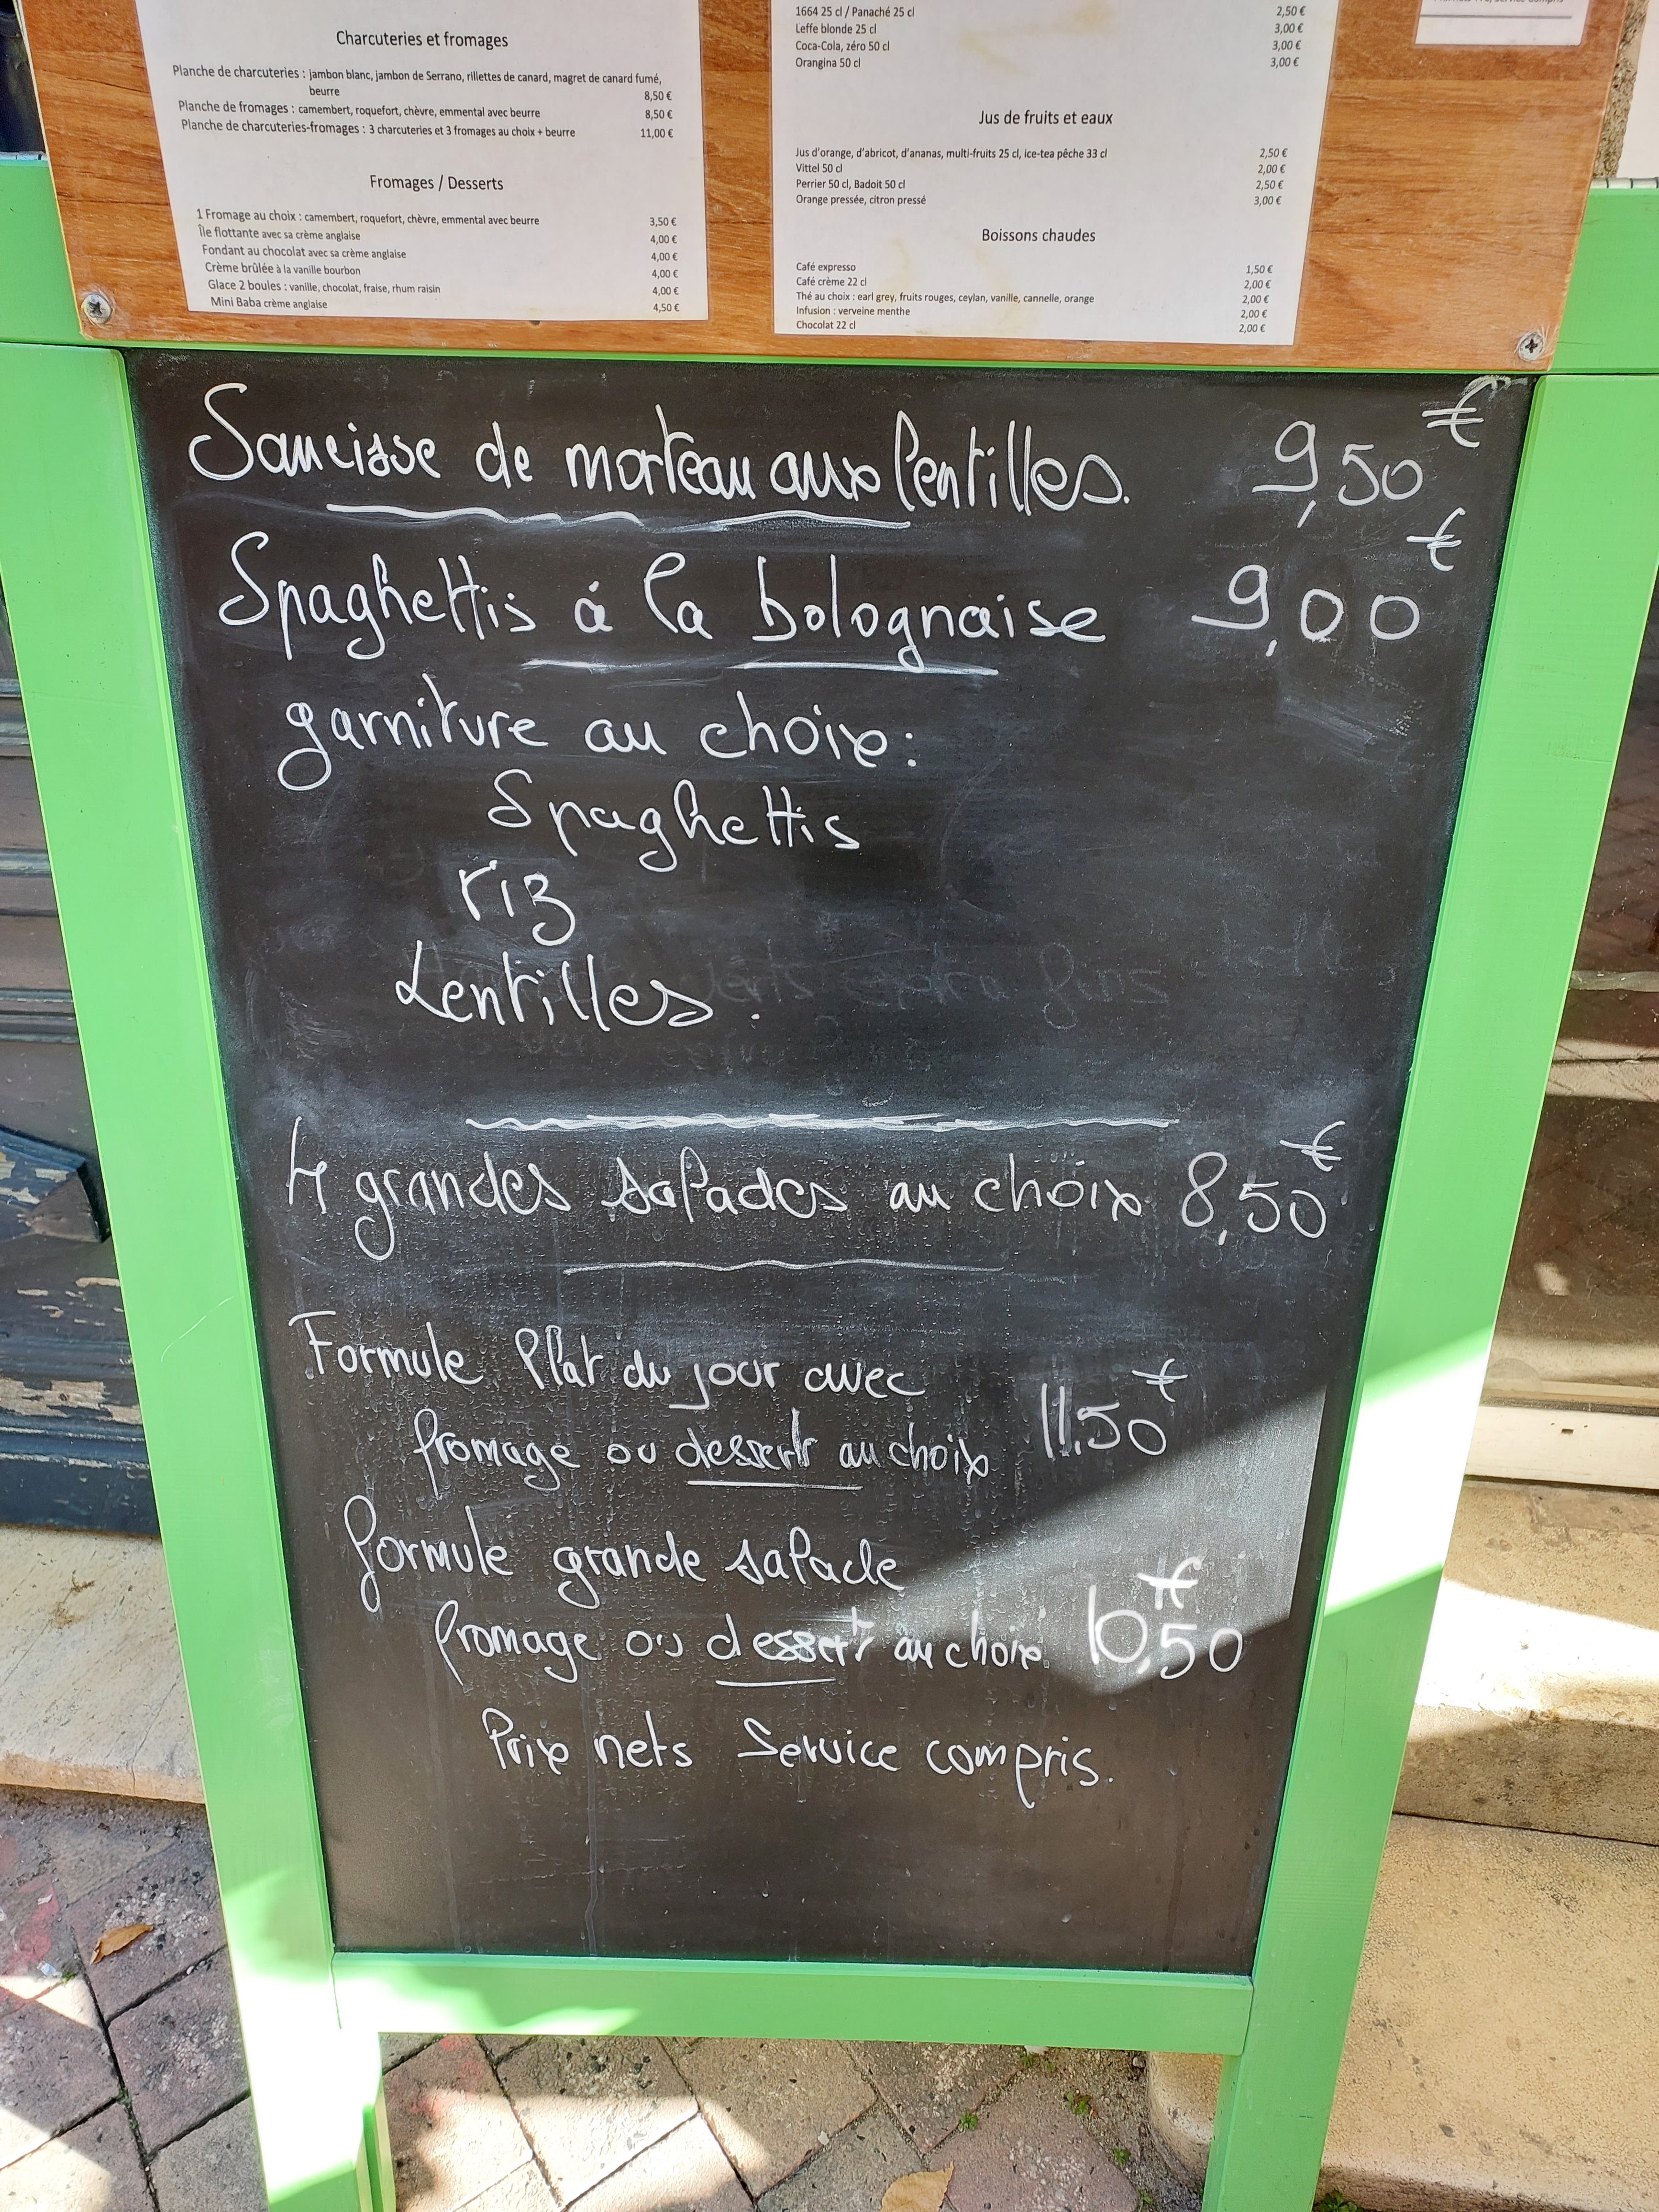 Charcuteries et fromages
Planche de charcuteries : jambon blanc, jambon de Serrano, rillettes de canard, magret de canard fumé,
beurre 8,50 €
Planche de fromages : camembert, roquefort, chèvre, emmental avec beurre 8,50 €
Planche de charcuteries-fromages : 3 charcuteries et 3 fromages au choix + beurre 11,00 €
Fromages / Desserts
1 Fromage au choix : camembert, roquefort, chèvre, emmental avec beurre 3,50 €
Île flottante avec sa crème anglaise 4,00 €
Fondant au chocolat avec sa crème anglaise 4,00 €
Crème brûlée à la vanille bourbon 4,00 €
Glace 2 boules : vanille, chocolat, fraise, rhum raisin 4,00 €
Mini Baba crème anglaise 4,50 €
1664 25 cl / Panaché 25 cl 2,50 €
Leffe blonde 25 cl 3,00 €
Coca-Cola, zéro 50 cl 3,00 €
Orangina 50 cl 3,00 €
Jus de fruits et eaux
Jus d'orange, d'abricot, d'ananas, multi-fruits 25 cl, ice-tea pêche 33 cl 2,50 €
Vittel 50 cl 2,00 €
Perrier 50 cl, Badoit 50 cl 2,50 €
Orange pressée, citron pressé 3,00 €
Boissons chaudes
Café expresso 1,50 €
Café crème 22 cl 2,00 €
Thé au choix : earl grey, fruits rouges, ceylan, vanille, cannelle, orange 2,00 €
Infusion : verveine menthe 2,00 €
Chocolat 22 cl 2,00 €
Saucisse de morteau aux lentilles. 9,50 €
Spaghettis á la bolognaise 9,00 €
garniture au choix :
Spaghettis
riz
Lentilles.
4 grandes salades au choix 8,50 €
Formule Plat du jour avec
fromage ou dessert au choix 11,50 €
formule grande salade
fromage ou dessert au choix 10,50 €
Prix nets Service compris.